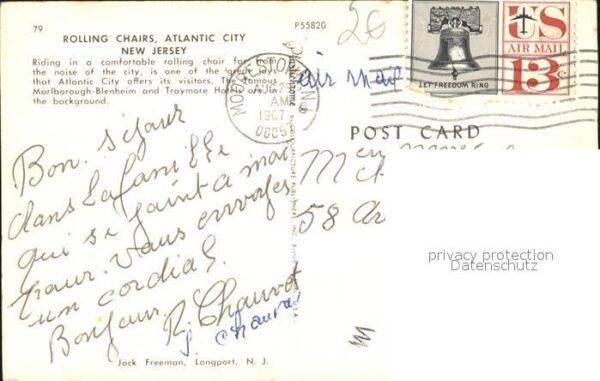 79
P55820
ROLLING CHAIRS, ATLANTIC CITY
NEW JERSEY
Riding in a comfortable rolling chair far from
the noise of the city, is one of the great joys
that Atlantic City offers its visitors. The famous
Marlborough-Blenheim and Traymore Hotels are in
the background.
Bon séjour
dans la famille
qui se joint à moi
pour vous envoyer
un cordial
Bonjour R. Chauvot
Jack Freeman, Longport, N. J.
26
air mail
MOORESTOWN
AUG 2
AM
1967
LET FREEDOM RING
US
AIR MAIL
13c
POST CARD
58
privacy protection
Datenschutz